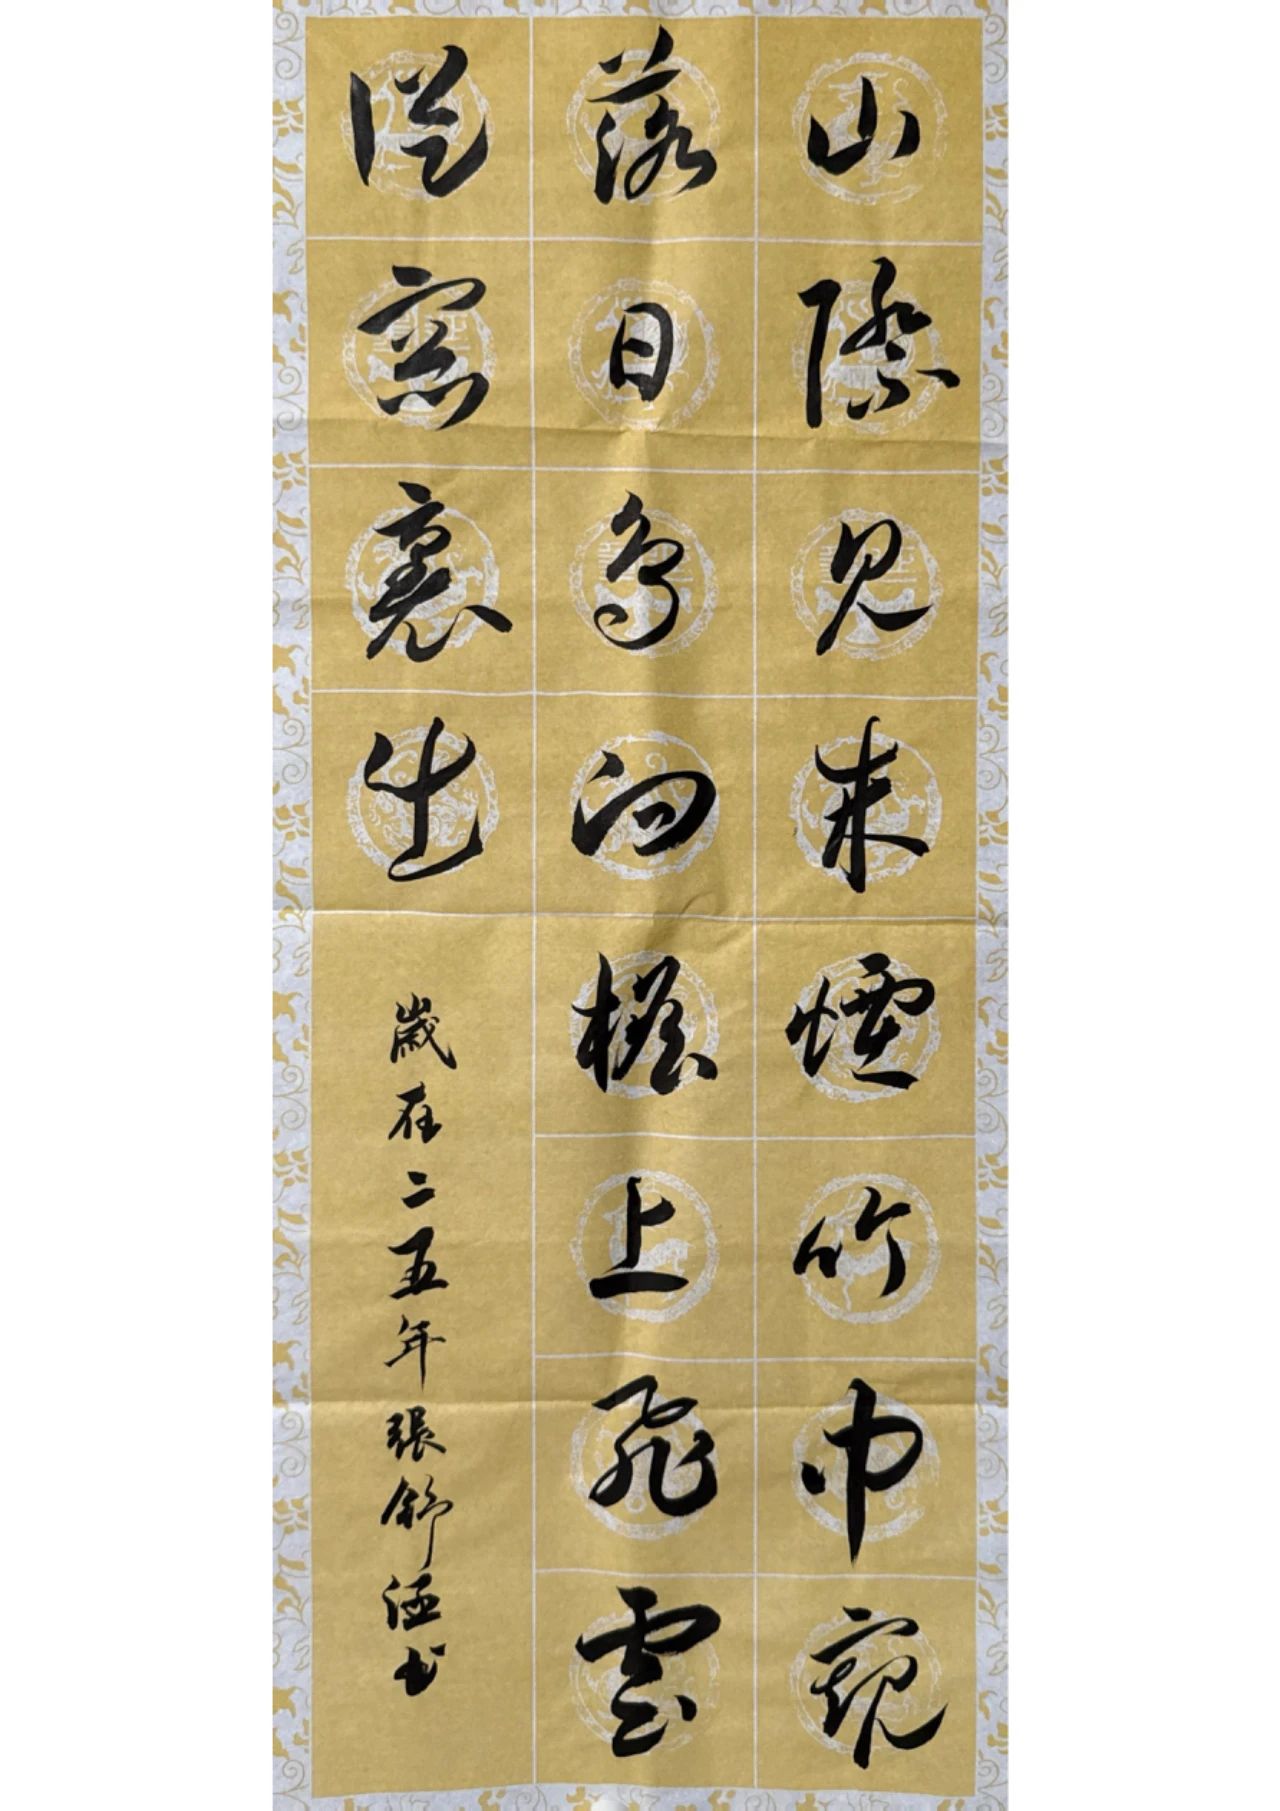 山際見来煙竹中窺
落日鳥向檐上飛雲
從窓裏出
歲在二五年張舒涵书